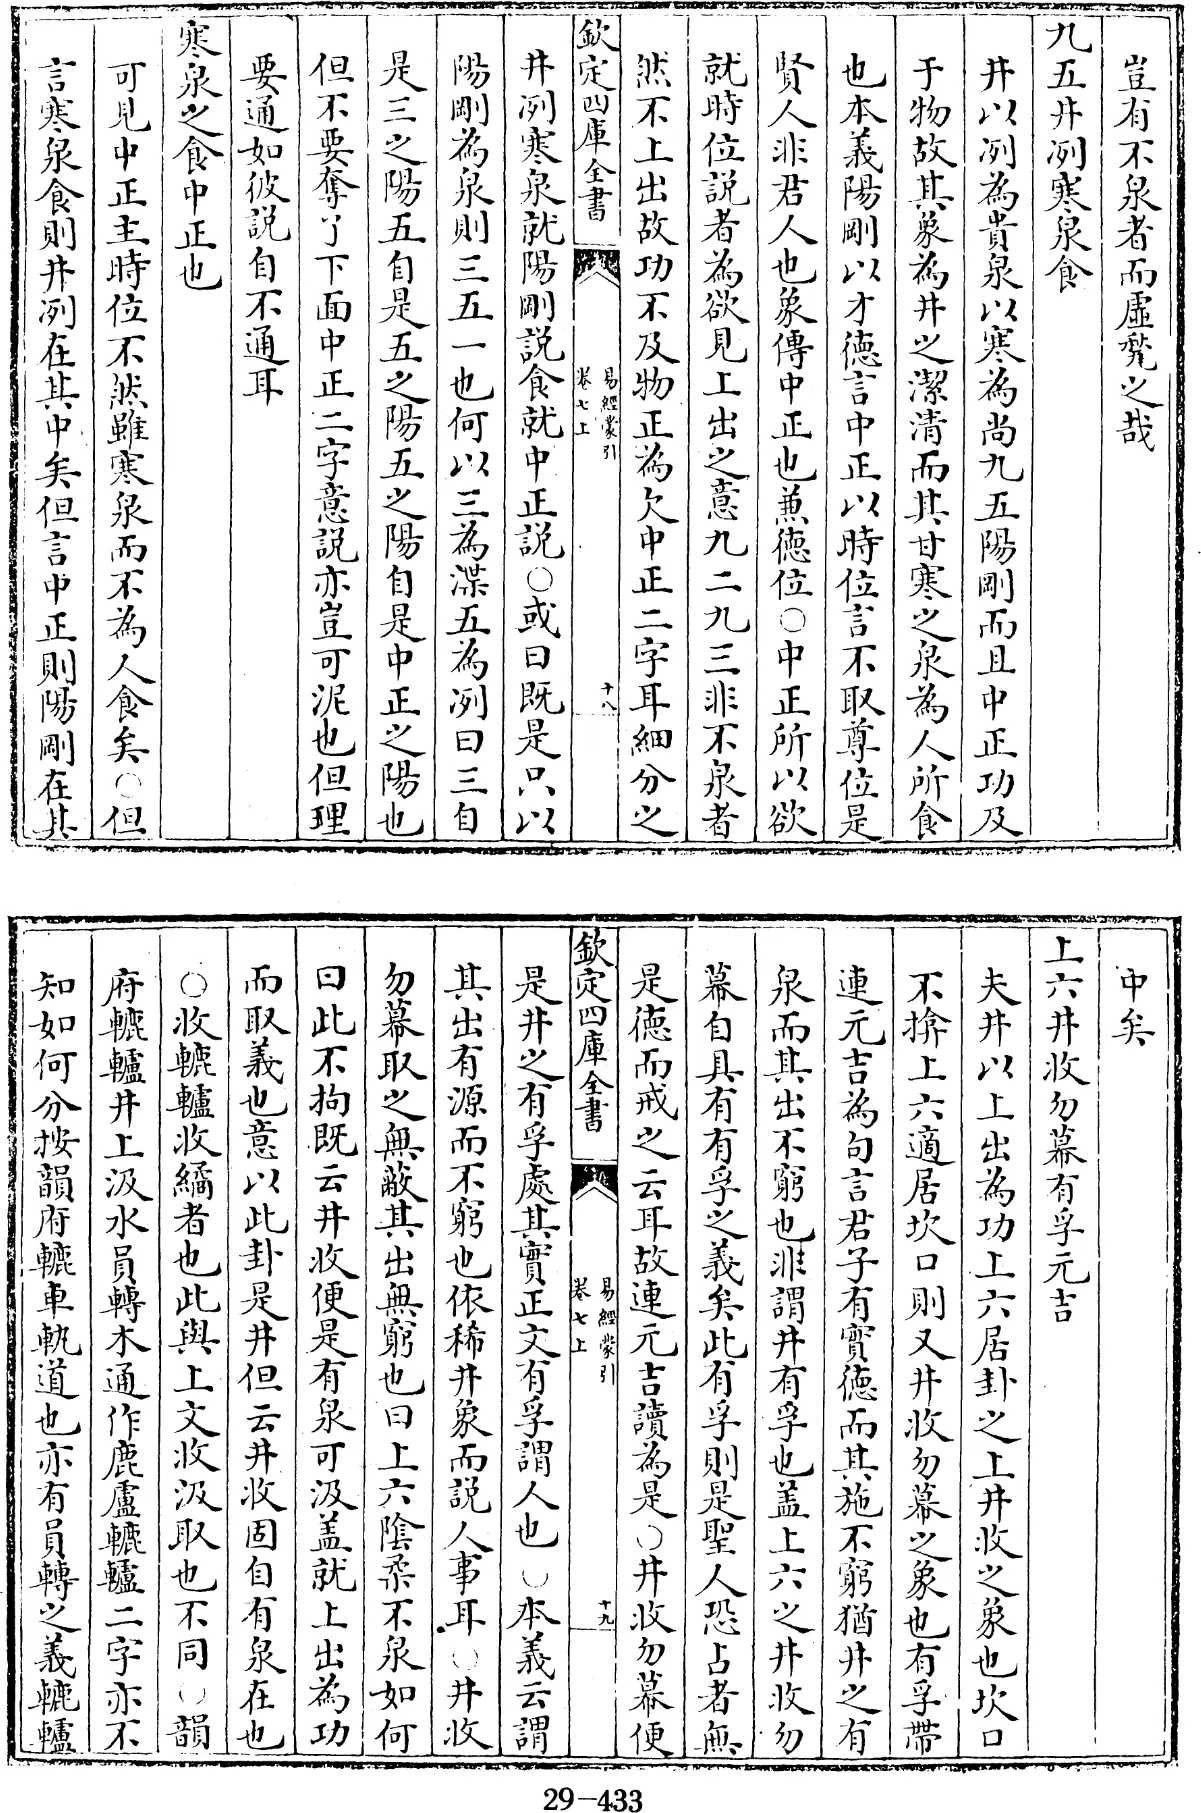 豈有不泉者而虚甃之哉
九五井冽寒泉食
井以冽為貴泉以寒為尚九五陽剛而且中正功及
于物故其象為井之潔清而其甘寒之泉為人所食
也本義陽剛以才德言中正以時位言不取尊位是
賢人非君人也象傳中正也兼德位○中正所以欲
就時位説者為欲見上出之意九二九三非不泉者
然不上出故功不及物正為欠中正二字耳細分之
欽定四庫全書
易經蒙引
卷七上
十八
井冽寒泉就陽剛説食就中正説○或曰既是只以
陽剛為泉則三五一也何以三為渫五為冽曰三自
是三之陽五自是五之陽五之陽自是中正之陽也
但不要奪了下面中正二字意説亦豈可泥也但理
要通如彼説自不通耳
寒泉之食中正也
可見中正主時位不然雖寒泉而不為人食矣○但
言寒泉食則井冽在其中矣但言中正則陽剛在其
中矣
上六井收勿幕有孚元吉
夫井以上出為功上六居卦之上井收之象也坎口
不揜上六適居坎口則又井收勿幕之象也有孚帶
連元吉為句言君子有實德而其施不窮猶井之有
泉而其出不窮也非謂井有孚也盖上六之井收勿
幕自具有有孚之義矣此有孚則是聖人恐占者無
是德而戒之云耳故連元吉讀為是○井收勿幕便
欽定四庫全書
易經蒙引
卷七上
十九
是井之有孚處其實正文有孚謂人也○本義云謂
其出有源而不窮也依稀井象而説人事耳○井收
勿幕取之無蔽其出無窮也曰上六隂柔不泉如何
曰此不拘既云井收便是有泉可汲盖就上出為功
而取義也意以此卦是井但云井收固自有泉在也
○收轆轤收繘者也此與上文收汲取也不同○韻
府轆轤井上汲水員轉木通作鹿盧轆轤二字亦不
知如何分按韻府轆車軌道也亦有員轉之義轆轤
29-433